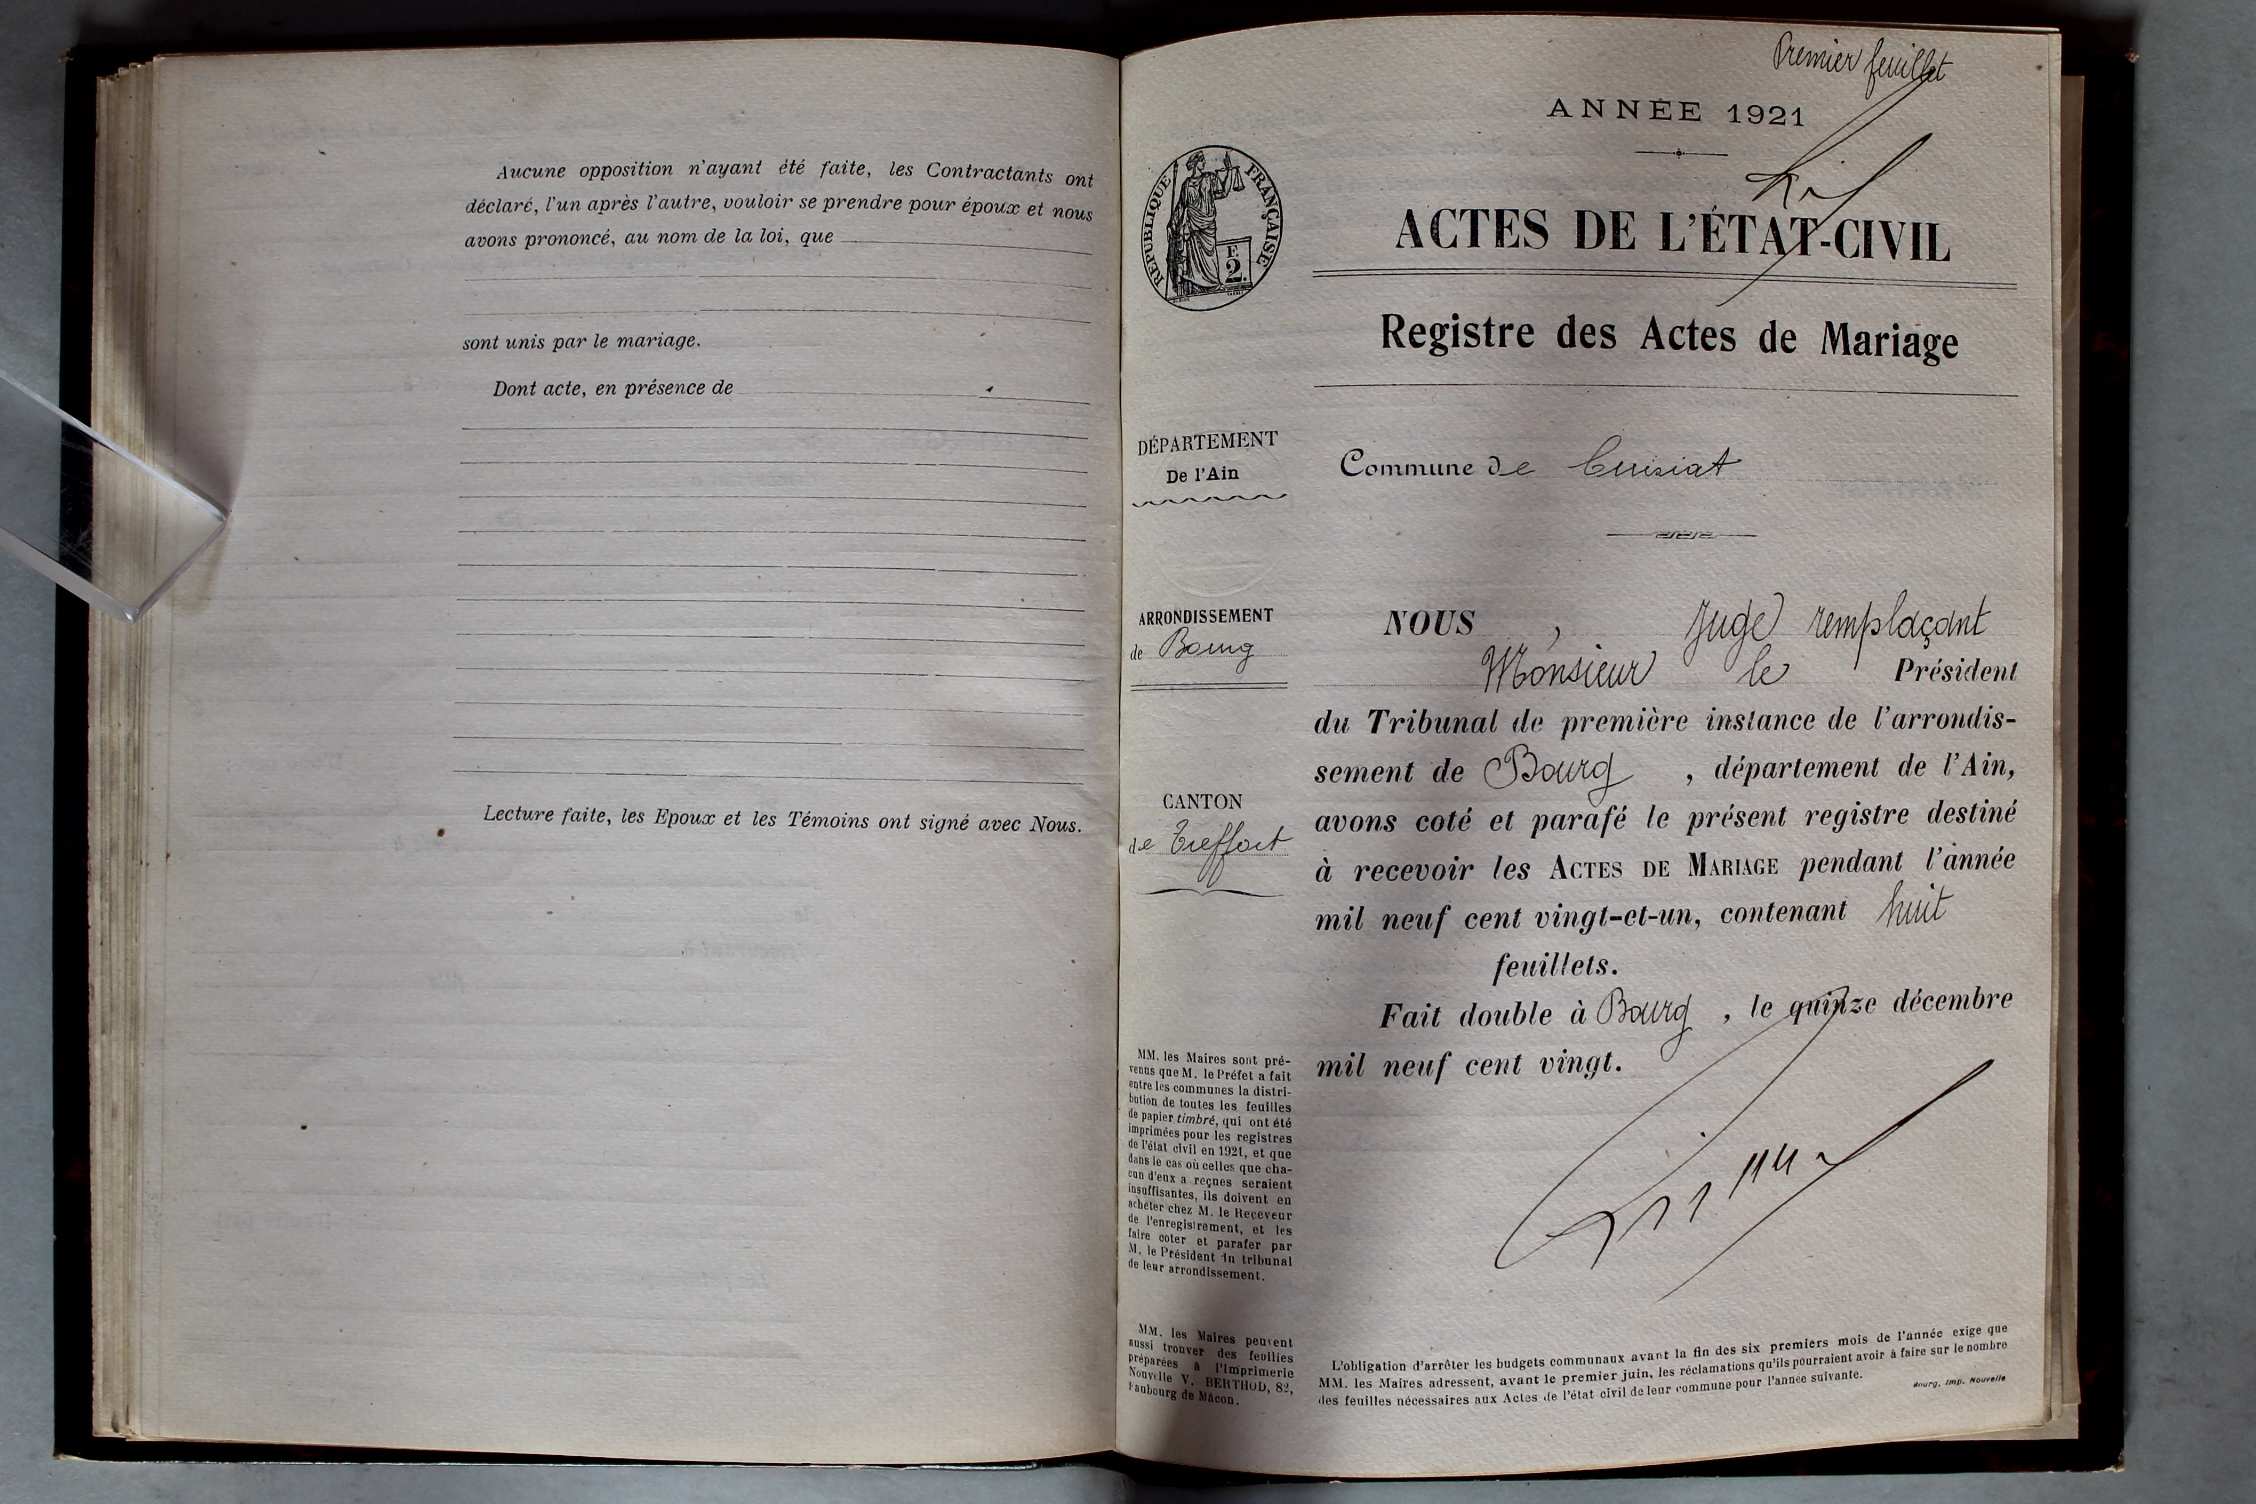 Aucune opposition n'ayant été faite, les Contractants ont
déclaré, l'un après l'autre, vouloir se prendre pour époux et nous
avons prononcé, au nom de la loi, que
sont unis par le mariage.
Dont acte, en présence de
Lecture faite, les Epoux et les Témoins ont signé avec Nous.
Premier feuillet
ANNÉE 1921
RÉPUBLIQUE FRANÇAISE
F.
2.
ACTES DE L'ÉTAT-CIVIL
Registre des Actes de Mariage
DÉPARTEMENT
De l'Ain
Commune de Cuisiat
ARRONDISSEMENT
de Bourg
CANTON
de Treffort
NOUS, Juge remplaçant
Monsieur le Président
du Tribunal de première instance de l'arrondis-
sement de Bourg, département de l'Ain,
avons coté et parafé le présent registre destiné
à recevoir les ACTES DE MARIAGE pendant l'année
mil neuf cent vingt-et-un, contenant huit
feuillets.
Fait double à Bourg, le quinze décembre
mil neuf cent vingt.
MM. les Maires sont pré-
venus que M. le Préfet a fait
entre les communes la distri-
bution de toutes les feuilles
de papier timbré, qui ont été
imprimées pour les registres
de l'état civil en 1921, et que
dans le cas où celles que cha-
cun d'eux a reçues seraient
insuffisantes, ils doivent en
acheter chez M. le Receveur
de l'enregistrement, et les
faire coter et parafer par
M. le Président du tribunal
de leur arrondissement.
MM. les Maires peuvent
aussi trouver des feuilles
préparées à l'Imprimerie
Nouvelle V. BERTHOD, 82,
Faubourg de Mâcon.
L'obligation d'arrêter les budgets communaux avant la fin des six premiers mois de l'année exige que
MM. les Maires adressent, avant le premier juin, les réclamations qu'ils pourraient avoir à faire sur le nombre
des feuilles nécessaires aux Actes de l'état civil de leur commune pour l'année suivante.
Bourg, Imp. Nouvelle